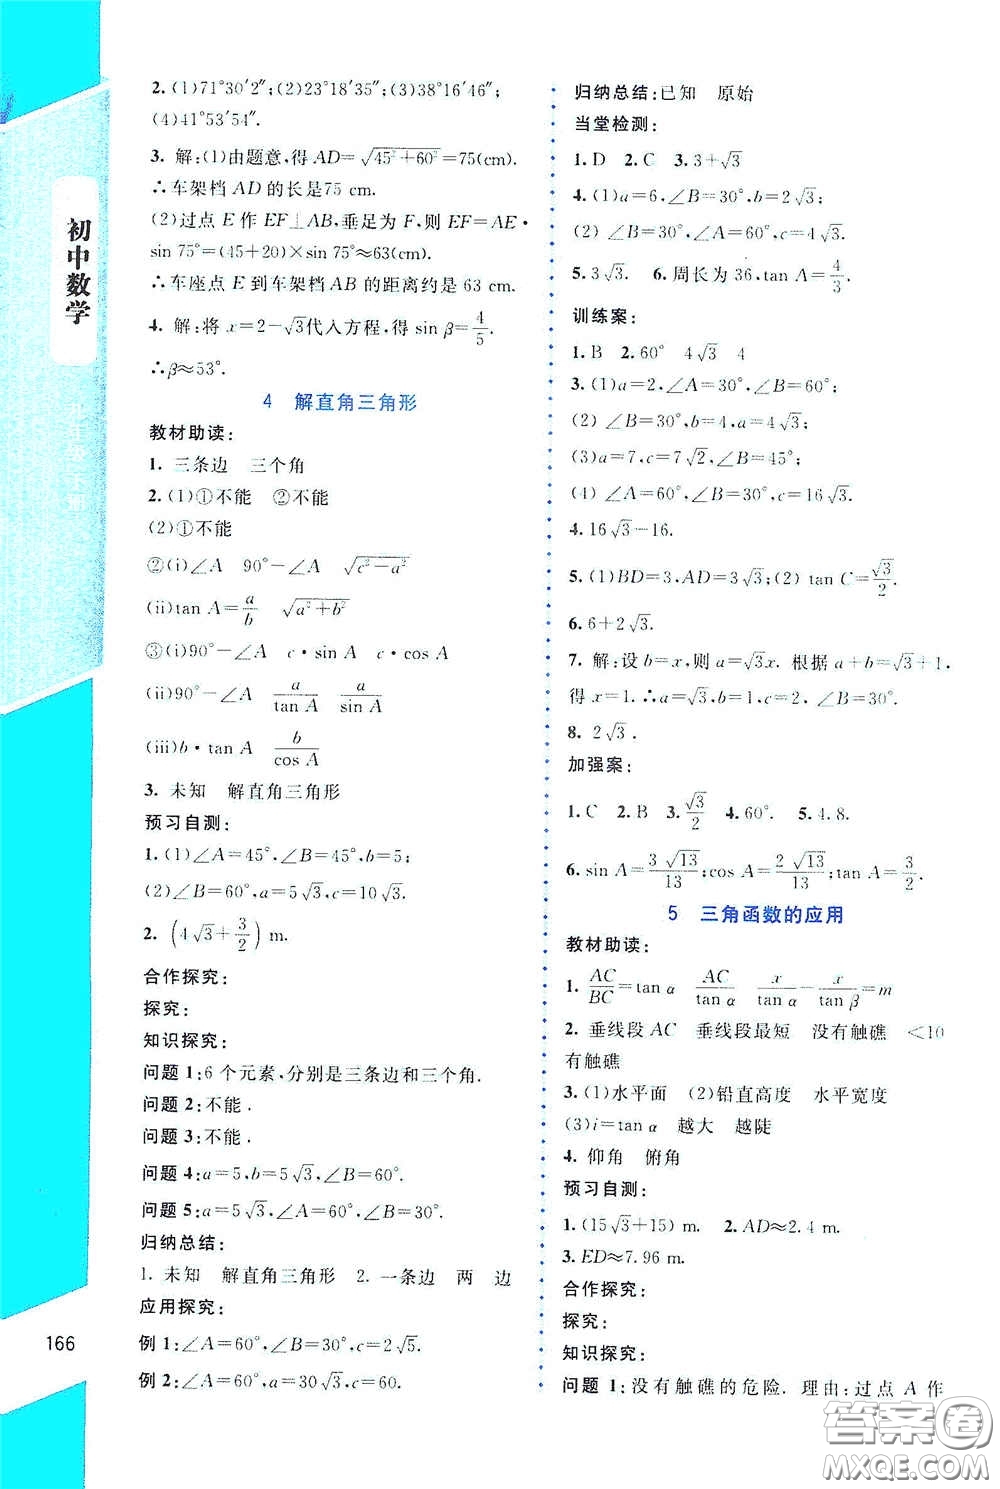 初中数学
2. (1)71°30′2″;(2)23°18′35″;(3)38°16′46″;
(4)41°53′54″.
3. 解:(1)由题意,得 AD=√(45²+60²)=75(cm).
∴车架档 AD 的长是75 cm.
(2)过点 E 作 EF⊥AB,垂足为 F,则 EF=AE·
sin 75°=(45+20)×sin 75°≈63(cm).
∴车座点 E 到车架档 AB 的距离约是 63 cm.
4. 解:将 x=2-√3代入方程,得 sin β=4/5.
∴β≈53°.
4 解直角三角形
教材助读:
1. 三条边 三个角
2. (1)①不能 ②不能
(2)①不能
②(i)∠A 90°-∠A √(c²-a²)
(ii)tan A=a/b √(a²+b²)
③(i)90°-∠A c·sin A c·cos A
(ii)90°-∠A a/tan A a/sin A
(iii)b·tan A b/cos A
3. 未知 解直角三角形
预习自测:
1. (1)∠A=45°,∠B=45°,b=5;
(2)∠B=60°,a=5√3,c=10√3.
2. (4√3+3/2) m.
合作探究:
探究:
知识探究:
问题 1:6 个元素,分别是三条边和三个角.
问题 2:不能.
问题 3:不能.
问题 4:a=5,b=5√3,∠B=60°.
问题 5:a=5√3,∠A=60°,∠B=30°.
归纳总结:
1. 未知 解直角三角形 2. 一条边 两 边
应用探究:
例 1:∠A=60°,∠B=30°,c=2√5.
例 2:∠A=60°,a=30√3,c=60.
166
归纳总结:已知 原始
当堂检测:
1. D 2. C 3. 3+√3
4. (1)a=6,∠B=30°,b=2√3;
(2) ∠B=30°,∠A=60°,c=4√3.
5. 3√3 6. 周长为 36,tan A=4/3.
训练案:
1. B 2. 60° 4√3 4
3. (1)a=2,∠A=30°,∠B=60°;
(2) ∠B=30°,b=4,a=4√3;
(3)a=7,c=7√2,∠B=45°;
(4) ∠A=60°,∠B=30°,c=16√3.
4. 16√3-16.
5. (1)BD=3,AD=3√3;(2) tan C=√3/2.
6. 6+2√3.
7. 解:设 b=x,则 a=√3x. 根据 a+b=√3+1,
得 x=1. ∴a=√3,b=1,c=2, ∠B=30°.
8. 2√3.
加强案:
1. C 2. B 3. √3/2 4. 60°. 5. 4.8.
6. sin A=3√13/13;cos A=2√13/13;tan A=3/2.
5 三角函数的应用
教材助读:
1. AC/BC=tan α AC/tan α x/tan α-x/tan β=m
2. 垂线段 AC 垂线段最短 没有触礁 <10
有触礁
3. (1)水平面 (2)铅直高度 水平宽度
(3)i=tan α 越大 越陡
4. 仰角 俯角
预习自测:
1. (15√3+15) m. 2. AD≈2.4 m.
3. ED≈7.96 m.
合作探究:
探究:
知识探究:
问题 1:没有触礁的危险. 理由:过点 A 作
答案卷
MXQE.COM